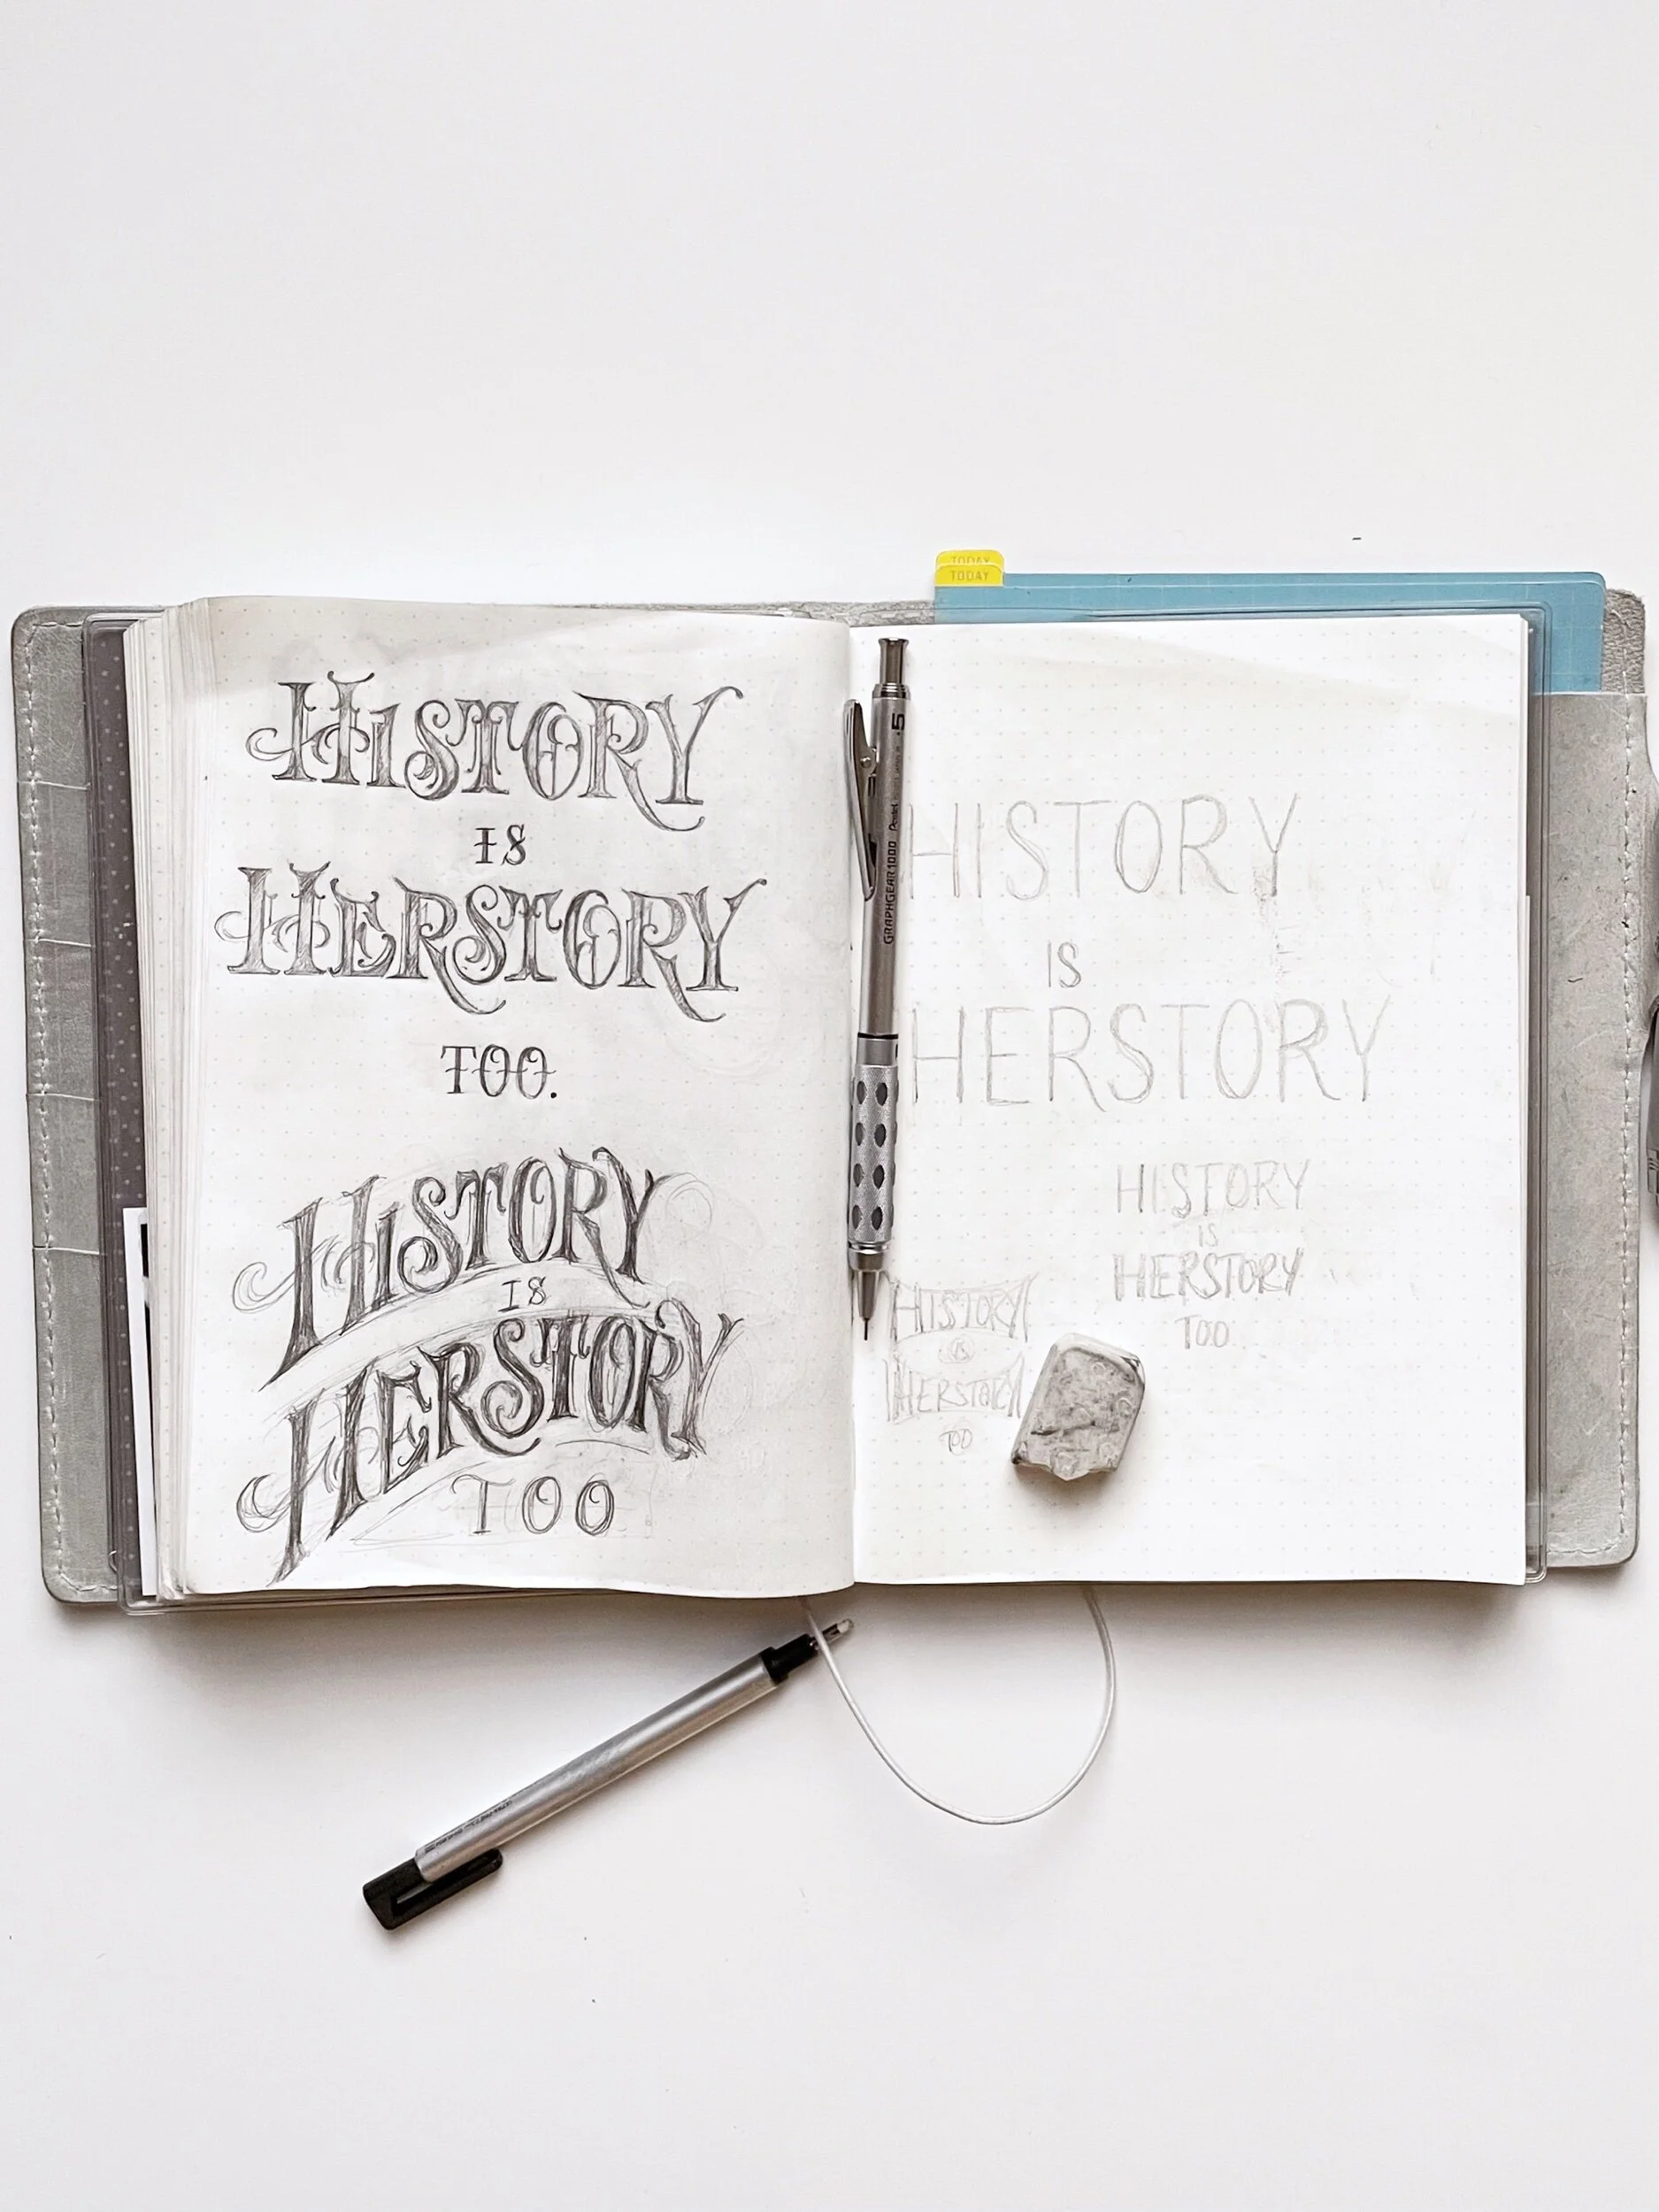 TODAY
TODAY
HISTORY
IS
HERSTORY
TOO.
HISTORY
IS
HERSTORY
TOO
GRAPHGEAR 1000 Pentel .5
HISTORY
IS
HERSTORY
HISTORY
IS
HERSTORY
TOO
HISTORY
IS
HERSTORY
TOO